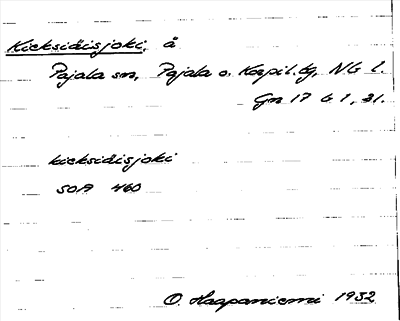 Kieksiäisjoki, å
Pajala sn, Pajala o. Korpil. tg, NB l.
Gn 17 G 1, 31.
kieksiäisjoki
SOA 460
O. Haapaniemi 1932